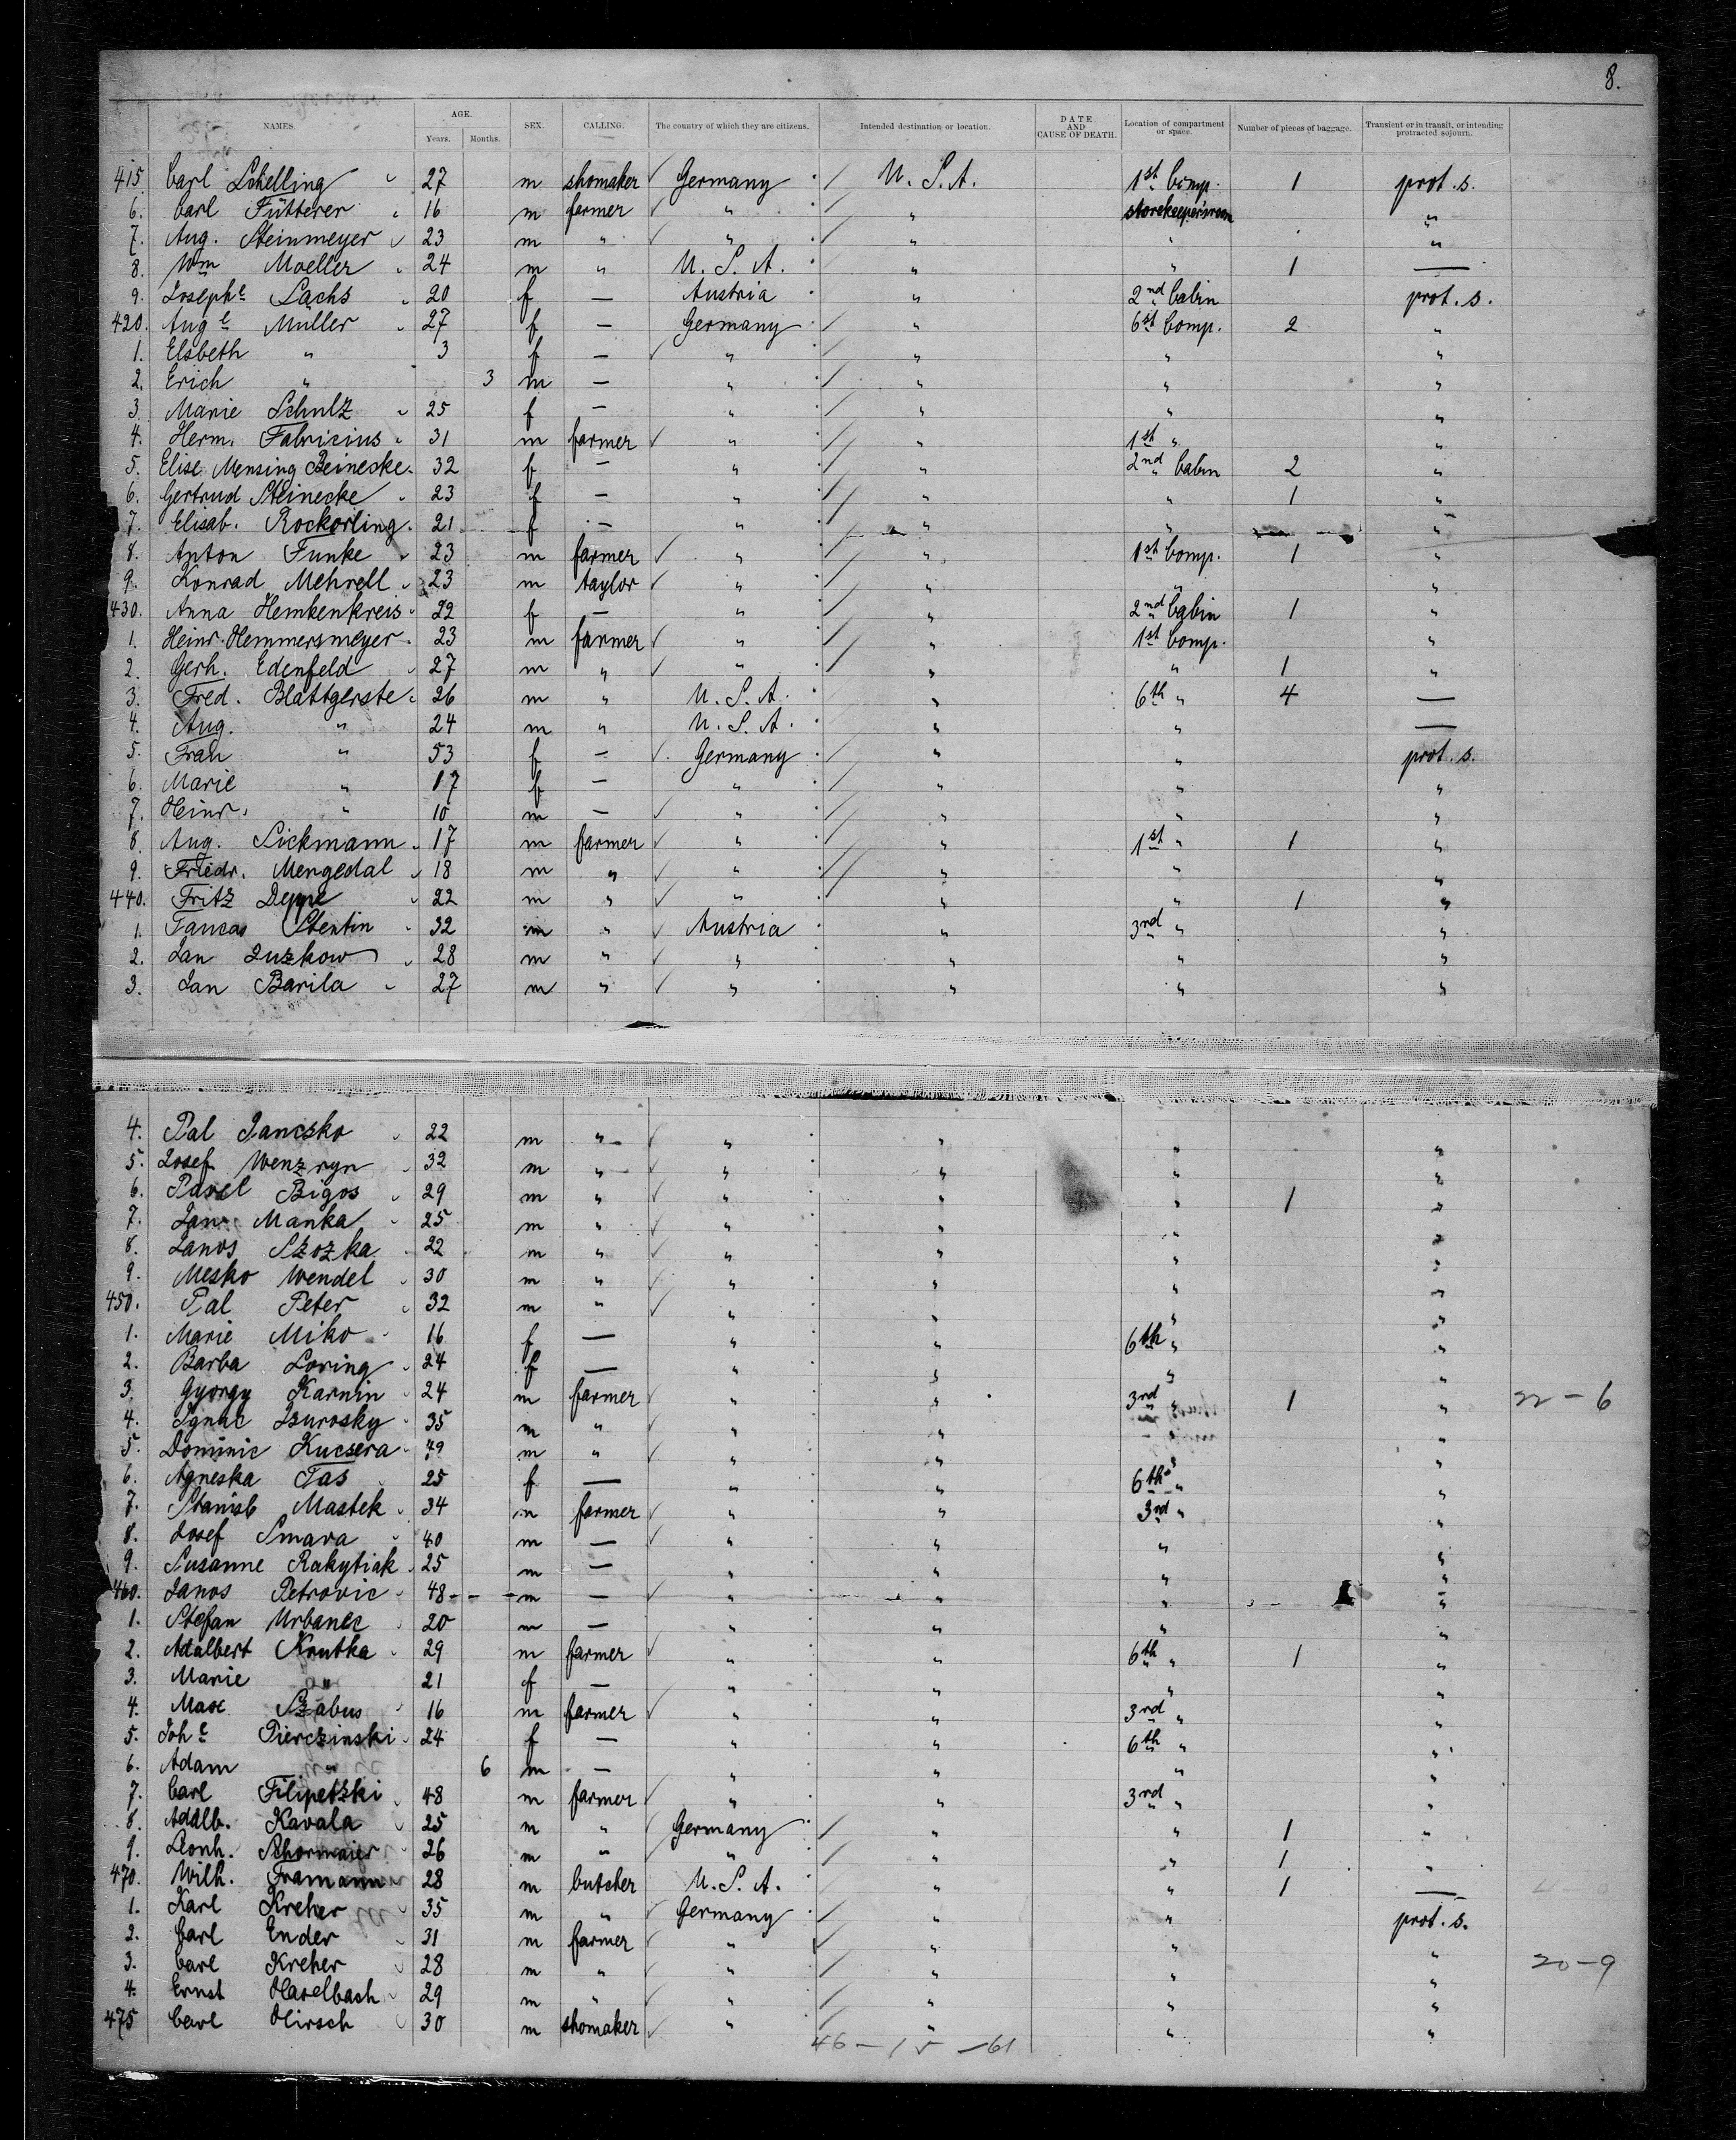 8.
NAMES. AGE. Years. Months. SEX. CALLING. The country of which they are citizens. Intended destination or location. DATE AND CAUSE OF DEATH. Location of compartment or space. Number of pieces of baggage. Transient or in transit, or intending protracted sojourn.
415. Carl Schelling 27 m shomaker Germany U. S. A. 1st Comp. 1 prot. s.
6. Carl Fütterer 16 m farmer " " storekeeper's room "
7. Aug. Steinmeyer 23 m " " " " "
8. Wm Moeller 24 m " U. S. A. " " 1 —
9. Josephe Sachs 20 f — Austria " 2nd Cabin prot. s.
420. Auge Müller 27 f — Germany " 6st Comp. 2 "
1. Elsbeth " 3 f — " " " "
2. Erich " 3 m — " " " "
3. Marie Schulz 25 f — " " " "
4. Herm. Fabricius 31 m farmer " " 1st " "
5. Elise Mensing Beineske 32 f — " " 2nd Cabin 2 "
6. Gertrud Steinecke 23 f — " " " 1 "
7. Elisab. Rockorling 21 f — " " " "
8. Anton Funke 23 m farmer " " 1st Comp. 1 "
9. Konrad Mehrell 23 m taylor " " " "
430. Anna Hemkenkreis 22 f — " " 2nd Cabin 1 "
1. Heinr. Hemmersmeyer 23 m farmer " " 1st Comp. "
2. Gerh. Edenfeld 27 m " " " " 1 "
3. Fred. Blattgerste 26 m " U. S. A. " 6th " 4 —
4. Aug. " 24 m " U. S. A. " " —
5. Frau " 53 f — Germany " " prot. s.
6. Marie " 17 f — " " " "
7. Heinr. " 10 m — " " " "
8. Aug. Sickmann 17 m farmer " " 1st " 1 "
9. Friedr. Mengedal 18 m " " " " "
440. Fritz Deppe 22 m " " " " 1 "
1. Stentin 32 m " Austria " 3rd " "
2. Jan Zuzkow 28 m " " " " "
3. Jan Barila 27 m " " " " "
4. Pal Jancsko 22 m " " " " "
5. Josef 32 m " " " " "
6. Pavel Bigos 29 m " " " " 1 "
7. Jan Manka 25 m " " " " "
8. Janos Szozka 22 m " " " " "
9. Mesko Wendel 30 m " " " " "
450. Pal Peter 32 m " " " " "
1. Marie Miko 16 f — " " 6th " "
2. Barba Loring 24 f — " " " "
3. Gyorgy Karnin 24 m farmer " " 3rd " 1 " 22 – 6
4. Ignac 35 m " " " " "
5. Dominic Kucsera 49 m " " " " "
6. Agneska Tas 25 f — " " 6th " "
7. Stanisl Mastek 34 m farmer " " 3rd " "
8. Josef Smara 40 m — " " " "
9. Susanne Rakytiak 25 m — " " " "
460. Janos Petrovic 48 m — " " " "
1. Stefan Urbanec 20 m — " " " "
2. Adalbert Krutka 29 m farmer " " 6th " 1 "
3. Marie " 21 f — " " " "
4. Max Szabus 16 m farmer " " 3rd " "
5. Johe Pierczinski 24 f — " " 6th " "
6. Adam " 6 m — " " " "
7. Carl Filipetzki 48 m farmer " " 3rd " "
8. Adalb. Kavala 25 m " Germany " " 1 "
9. Leonh. Schormaier 26 m " " " " 1 "
470. Wilh. Framann 28 m butcher U. S. A. " " 1 —
1. Karl Kreher 35 m " Germany " " prot. s.
2. Carl Ender 31 m farmer " " " "
3. Carl Kreher 28 m " " " " " 20–9
4. Ernst Haselbach 29 m " " " " "
475 Carl Hirsch 30 m shomaker " " " "
46 – 15 – 61